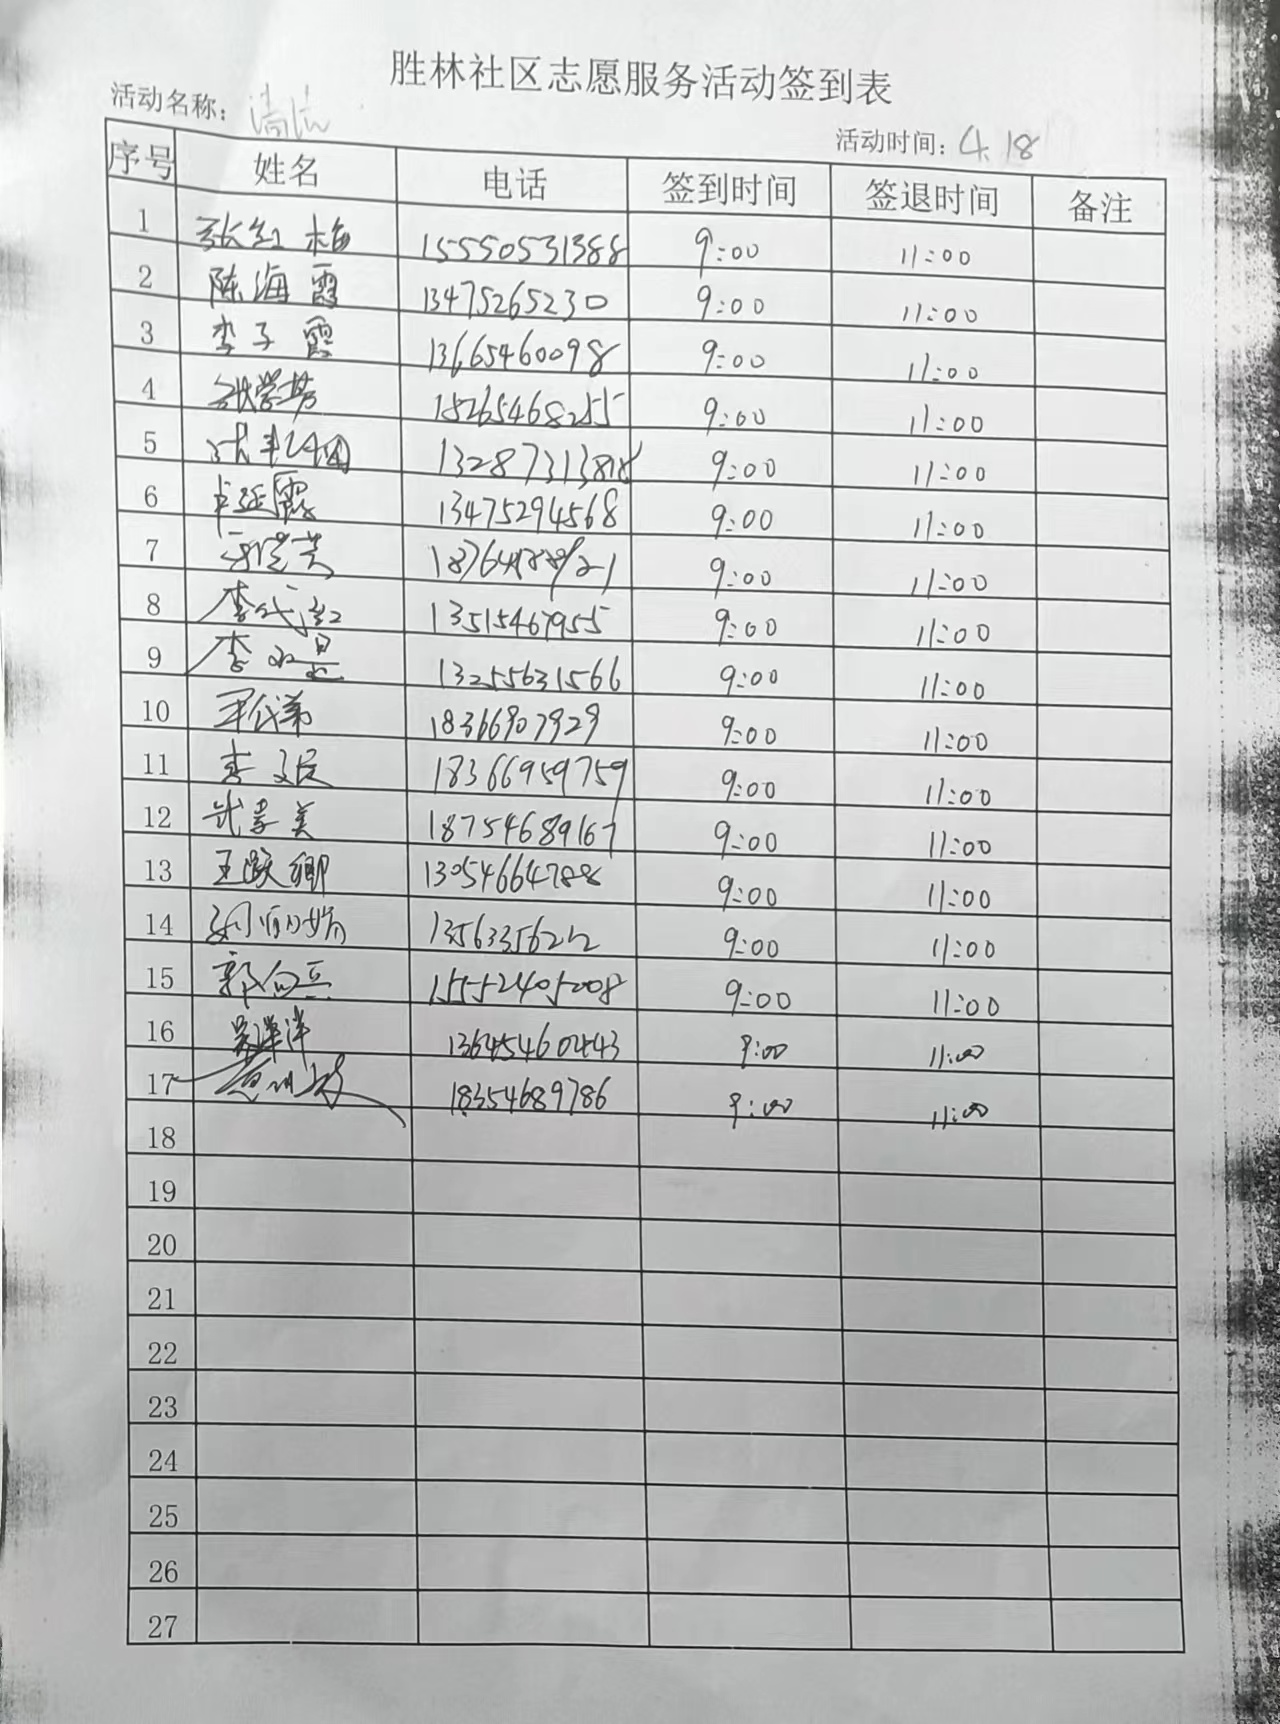 胜林社区志愿服务活动签到表
活动名称：清洁
活动时间：4.18
序号 姓名 电话 签到时间 签退时间 备注
1 张红梅 15550531388 9:00 11:00
2 陈海霞 13475265230 9:00 11:00
3 李子霞 13665460098 9:00 11:00
4 张学芳 15265468255 9:00 11:00
5 13287313818 9:00 11:00
6 卢延霞 13475294568 9:00 11:00
7 9:00 11:00
8 李代红 13515467955 9:00 11:00
9 李永昱 13255631566 9:00 11:00
10 18366907929 9:00 11:00
11 李文民 18366959759 9:00 11:00
12 武孝美 18754689167 9:00 11:00
13 王跃卿 13054664788 9:00 11:00
14 13563356212 9:00 11:00
15 郭向兵 15552405008 9:00 11:00
16 吴洋洋 13645460443 9:00 11:00
17 18354689786 9:00 11:00
18
19
20
21
22
23
24
25
26
27